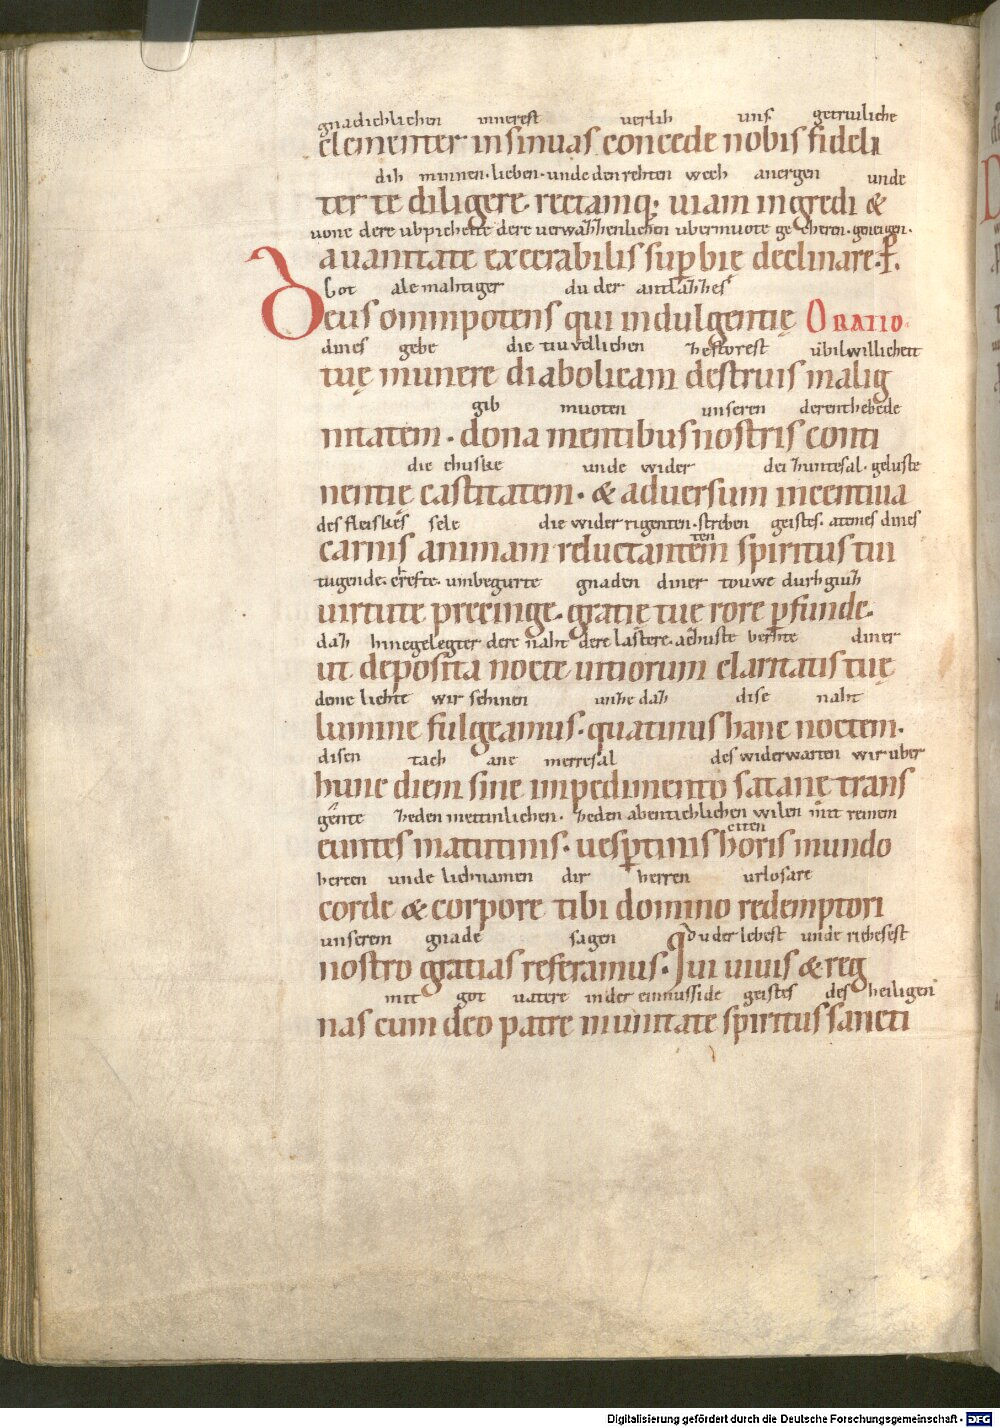 gnadichlichen innerest uerlih uns getruliche
clementer insinuas concede nobis fideli
dih minnen · lieben · unde den rehten wech anergen unde
ter te diligere · rectamq; uiam ingredi &
uone dere ubpichette dere uerwazzenlichen ubermuote geneigen ·
a uanitate execrabilis supbię declinare · P.
Got alemahtiger du der antlazzes
Deus omnipotens qui indulgentię ORATIO
dines gebe die tiuvellichen zestorest ubilwillichett
tuę munere diabolicam destruis malig
gib muoten unseren derenthebede
nitatem · dona mentibus nostris conti
die chuske unde wider dei zuntesal · geluste
nentię castitatem · & aduersum incentiua
des fleiskes sele die widerrigenten · streben geistes · atemes dines
ten
carnis animam reluctantem spiritus tui
tugende · crefte · umbegurte gnaden diner touwe durhguiz
uirtute precinge · gratię tuę rore pfunde ·
daz hinegelegter dere naht dere lastere · achuste berhte diner
ut deposita nocte uitiorum claritatis tuę
deme liehte wir schinen unze daz dise naht
lumine fulgeamus · quatinus hanc noctem ·
disen tach ane merresal des widerwarten wir uber
hunc diem sine impedimento satanę trans
gente zeden mettinlichen · zeden abentichlichen wilen mit reinem
citen
euntes matutinis · uesptinis horis mundo
herzen unde lichnamen dir herren urlosare
corde & corpore tibi domino redemptori
unserem gnade sagen Du der lebest unde richesest
nostro gratias referamus · Qui uiuis & reg
mit got uatere in der einnusside geistes des heiligen
nas cum deo patre in unitate spiritus sancti
Digitalisierung gefördert durch die Deutsche Forschungsgemeinschaft - DFG